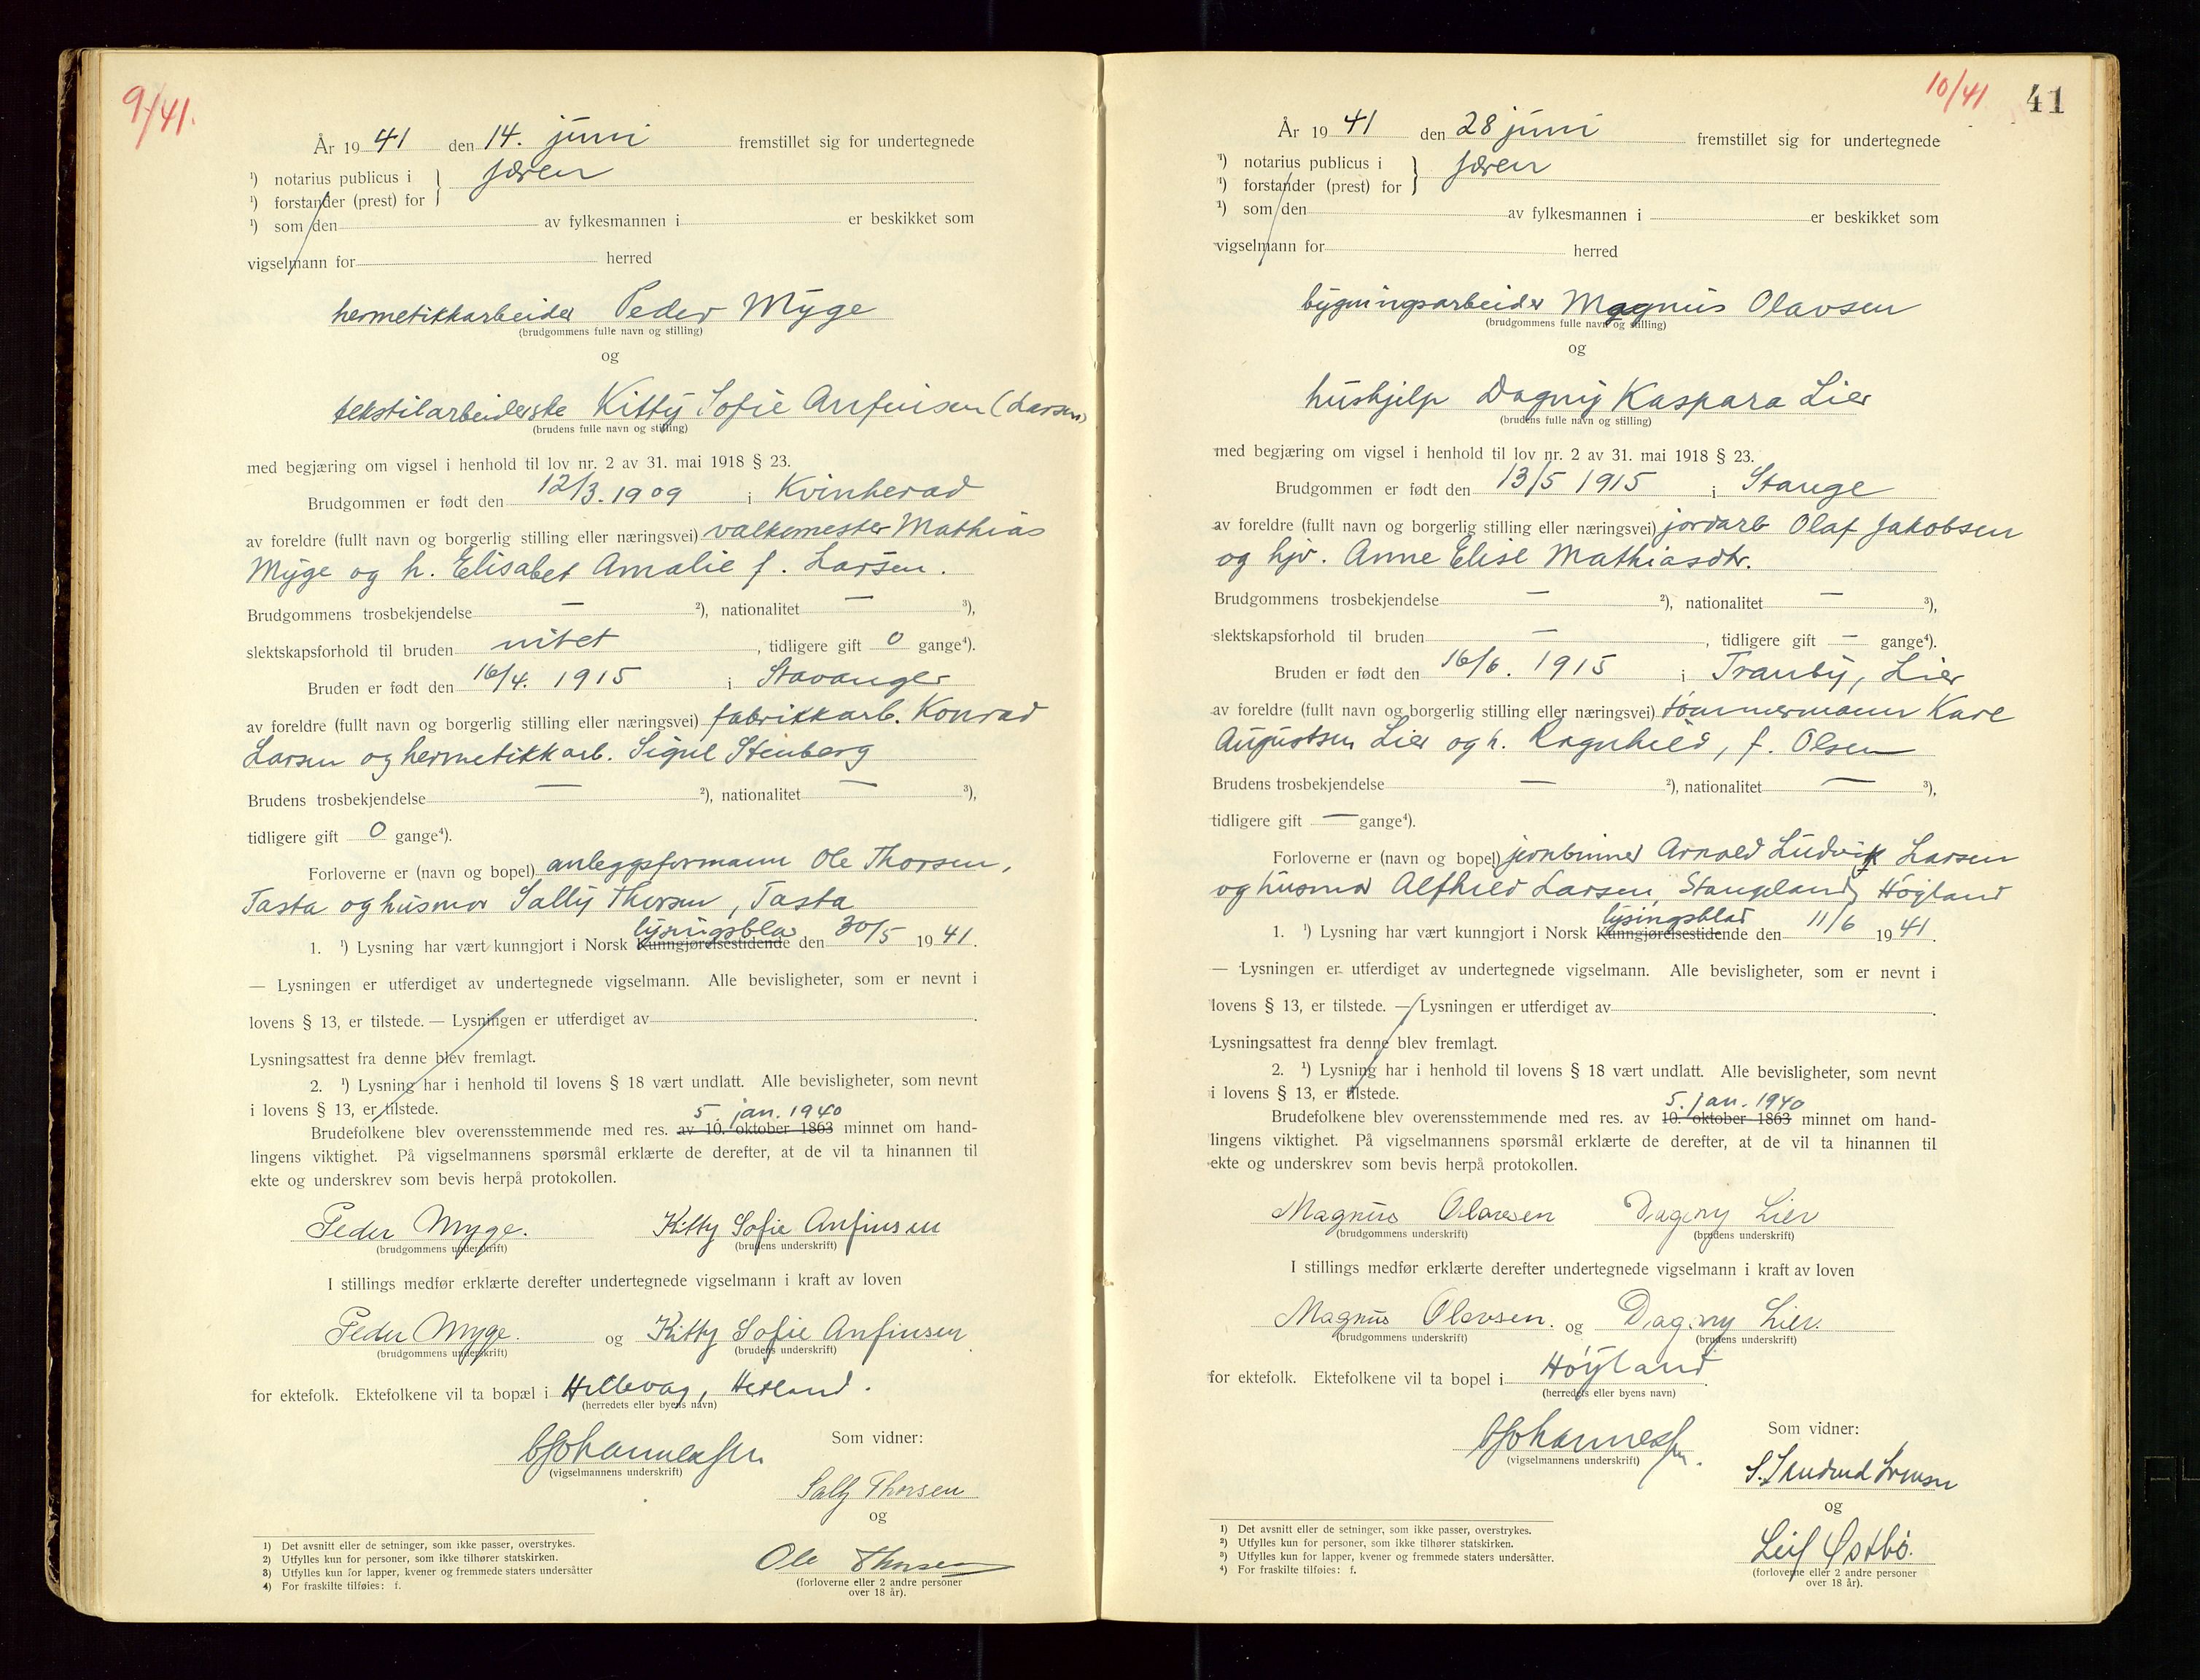 9/41.
År 1941 den 14. juni fremstillet sig for undertegnede
¹) notarius publicus i } Jæren
¹) forstander (prest) for
¹) som den av fylkesmannen i er beskikket som
vigselmann for herred
hermetikkarbeider Peder Myge
(brudgommens fulle navn og stilling)
og
tekstilarbeiderske Kitty Sofie Anfinsen (Larsen)
(brudens fulle navn og stilling)
med begjæring om vigsel i henhold til lov nr. 2 av 31. mai 1918 § 23.
Brudgommen er født den 12/3. 1909 i Kvinherad
av foreldre (fullt navn og borgerlig stilling eller næringsvei) valkemester Mathias
Myge og h. Elisabet Amalie f. Larsen.
Brudgommens trosbekjendelse — ²), nationalitet — ³),
slektskapsforhold til bruden intet, tidligere gift 0 gange⁴).
Bruden er født den 16/4. 1915 i Stavanger
av foreldre (fullt navn og borgerlig stilling eller næringsvei) fabrikkarb. Konrad
Larsen og hermetikkarb. Signe Stenberg
Brudens trosbekjendelse — ²), nationalitet — ³),
tidligere gift 0 gange⁴).
Forloverne er (navn og bopel) anleggsformann Ole Thorsen,
Tasta og husmor Sally Thorsen, Tasta
lysingsblad
1. ¹) Lysning har vært kunngjort i Norsk Kunngjørelsestidende den 30/5 1941.
— Lysningen er utferdiget av undertegnede vigselmann. Alle bevisligheter, som er nevnt i
lovens § 13, er tilstede. — Lysningen er utferdiget av .
Lysningsattest fra denne blev fremlagt.
2. ¹) Lysning har i henhold til lovens § 18 vært undlatt. Alle bevisligheter, som nevnt
i lovens § 13, er tilstede.
5. jan. 1940
Brudefolkene blev overensstemmende med res. av 10. oktober 1863 minnet om hand-
lingens viktighet. På vigselmannens spørsmål erklærte de derefter, at de vil ta hinannen til
ekte og underskrev som bevis herpå protokollen.
Peder Myge. Kitty Sofie Anfinsen
(brudgommens underskrift) (brudens underskrift)
I stillings medfør erklærte derefter undertegnede vigselmann i kraft av loven
Peder Myge. og Kitty Sofie Anfinsen
(brudgommens underskrift) (brudens underskrift)
for ektefolk. Ektefolkene vil ta bopæl i Hillevåg, Hetland.
(herredets eller byens navn)
Johannessen
(vigselmannens underskrift)
Som vidner:
Sally Thorsen
og
Ole Thorsen
(forloverne eller 2 andre personer
over 18 år).
1) Det avsnitt eller de setninger, som ikke passer, overstrykes.
2) Utfylles kun for personer, som ikke tilhører statskirken.
3) Utfylles kun for lapper, kvener og fremmede staters undersåtter
4) For fraskilte tilføies: f.
10/41 41
År 1941 den 28 juni fremstillet sig for undertegnede
¹) notarius publicus i } Jæren
¹) forstander (prest) for
¹) som den av fylkesmannen i er beskikket som
vigselmann for herred
bygningsarbeider Magnus Olavsen
(brudgommens fulle navn og stilling)
og
hushjelp Dagny Kaspara Lier
(brudens fulle navn og stilling)
med begjæring om vigsel i henhold til lov nr. 2 av 31. mai 1918 § 23.
Brudgommen er født den 13/5 1915 i Stange
av foreldre (fullt navn og borgerlig stilling eller næringsvei) jordarb Olaf Jakobsen
og hjv. Anne Elise Mathiasdtr.
Brudgommens trosbekjendelse — ²), nationalitet — ³),
slektskapsforhold til bruden —, tidligere gift — gange⁴).
Bruden er født den 16/6. 1915 i Tranby, Lier
av foreldre (fullt navn og borgerlig stilling eller næringsvei) tømmermann Kare
Augustsen Lier og h. Ragnhild, f. Olsen
Brudens trosbekjendelse — ²), nationalitet — ³),
tidligere gift — gange⁴).
Forloverne er (navn og bopel) jernbinner Arnold Ludvik Larsen
og husmor Alfhild Larsen, Stangeland, Høyland
lysingsblad
1. ¹) Lysning har vært kunngjort i Norsk Kunngjørelsestidende den 11/6 1941.
— Lysningen er utferdiget av undertegnede vigselmann. Alle bevisligheter, som er nevnt i
lovens § 13, er tilstede. — Lysningen er utferdiget av .
Lysningsattest fra denne blev fremlagt.
2. ¹) Lysning har i henhold til lovens § 18 vært undlatt. Alle bevisligheter, som nevnt
i lovens § 13, er tilstede.
5. jan. 1940
Brudefolkene blev overensstemmende med res. av 10. oktober 1863 minnet om hand-
lingens viktighet. På vigselmannens spørsmål erklærte de derefter, at de vil ta hinannen til
ekte og underskrev som bevis herpå protokollen.
Magnus Olavsen Dagny Lier
(brudgommens underskrift) (brudens underskrift)
I stillings medfør erklærte derefter undertegnede vigselmann i kraft av loven
Magnus Olavsen. og Dagny Lier.
(brudgommens underskrift) (brudens underskrift)
for ektefolk. Ektefolkene vil ta bopel i Høyland.
(herredets eller byens navn)
Johannessen.
(vigselmannens underskrift)
Som vidner:
og
Leif Østbø.
(forloverne eller 2 andre personer
over 18 år).
¹) Det avsnitt eller de setninger, som ikke passer, overstrykes.
²) Utfylles kun for personer, som ikke tilhører statskirken.
³) Utfylles kun for lapper, kvener og fremmede staters undersåtter.
⁴) For fraskilte tilføies: f.